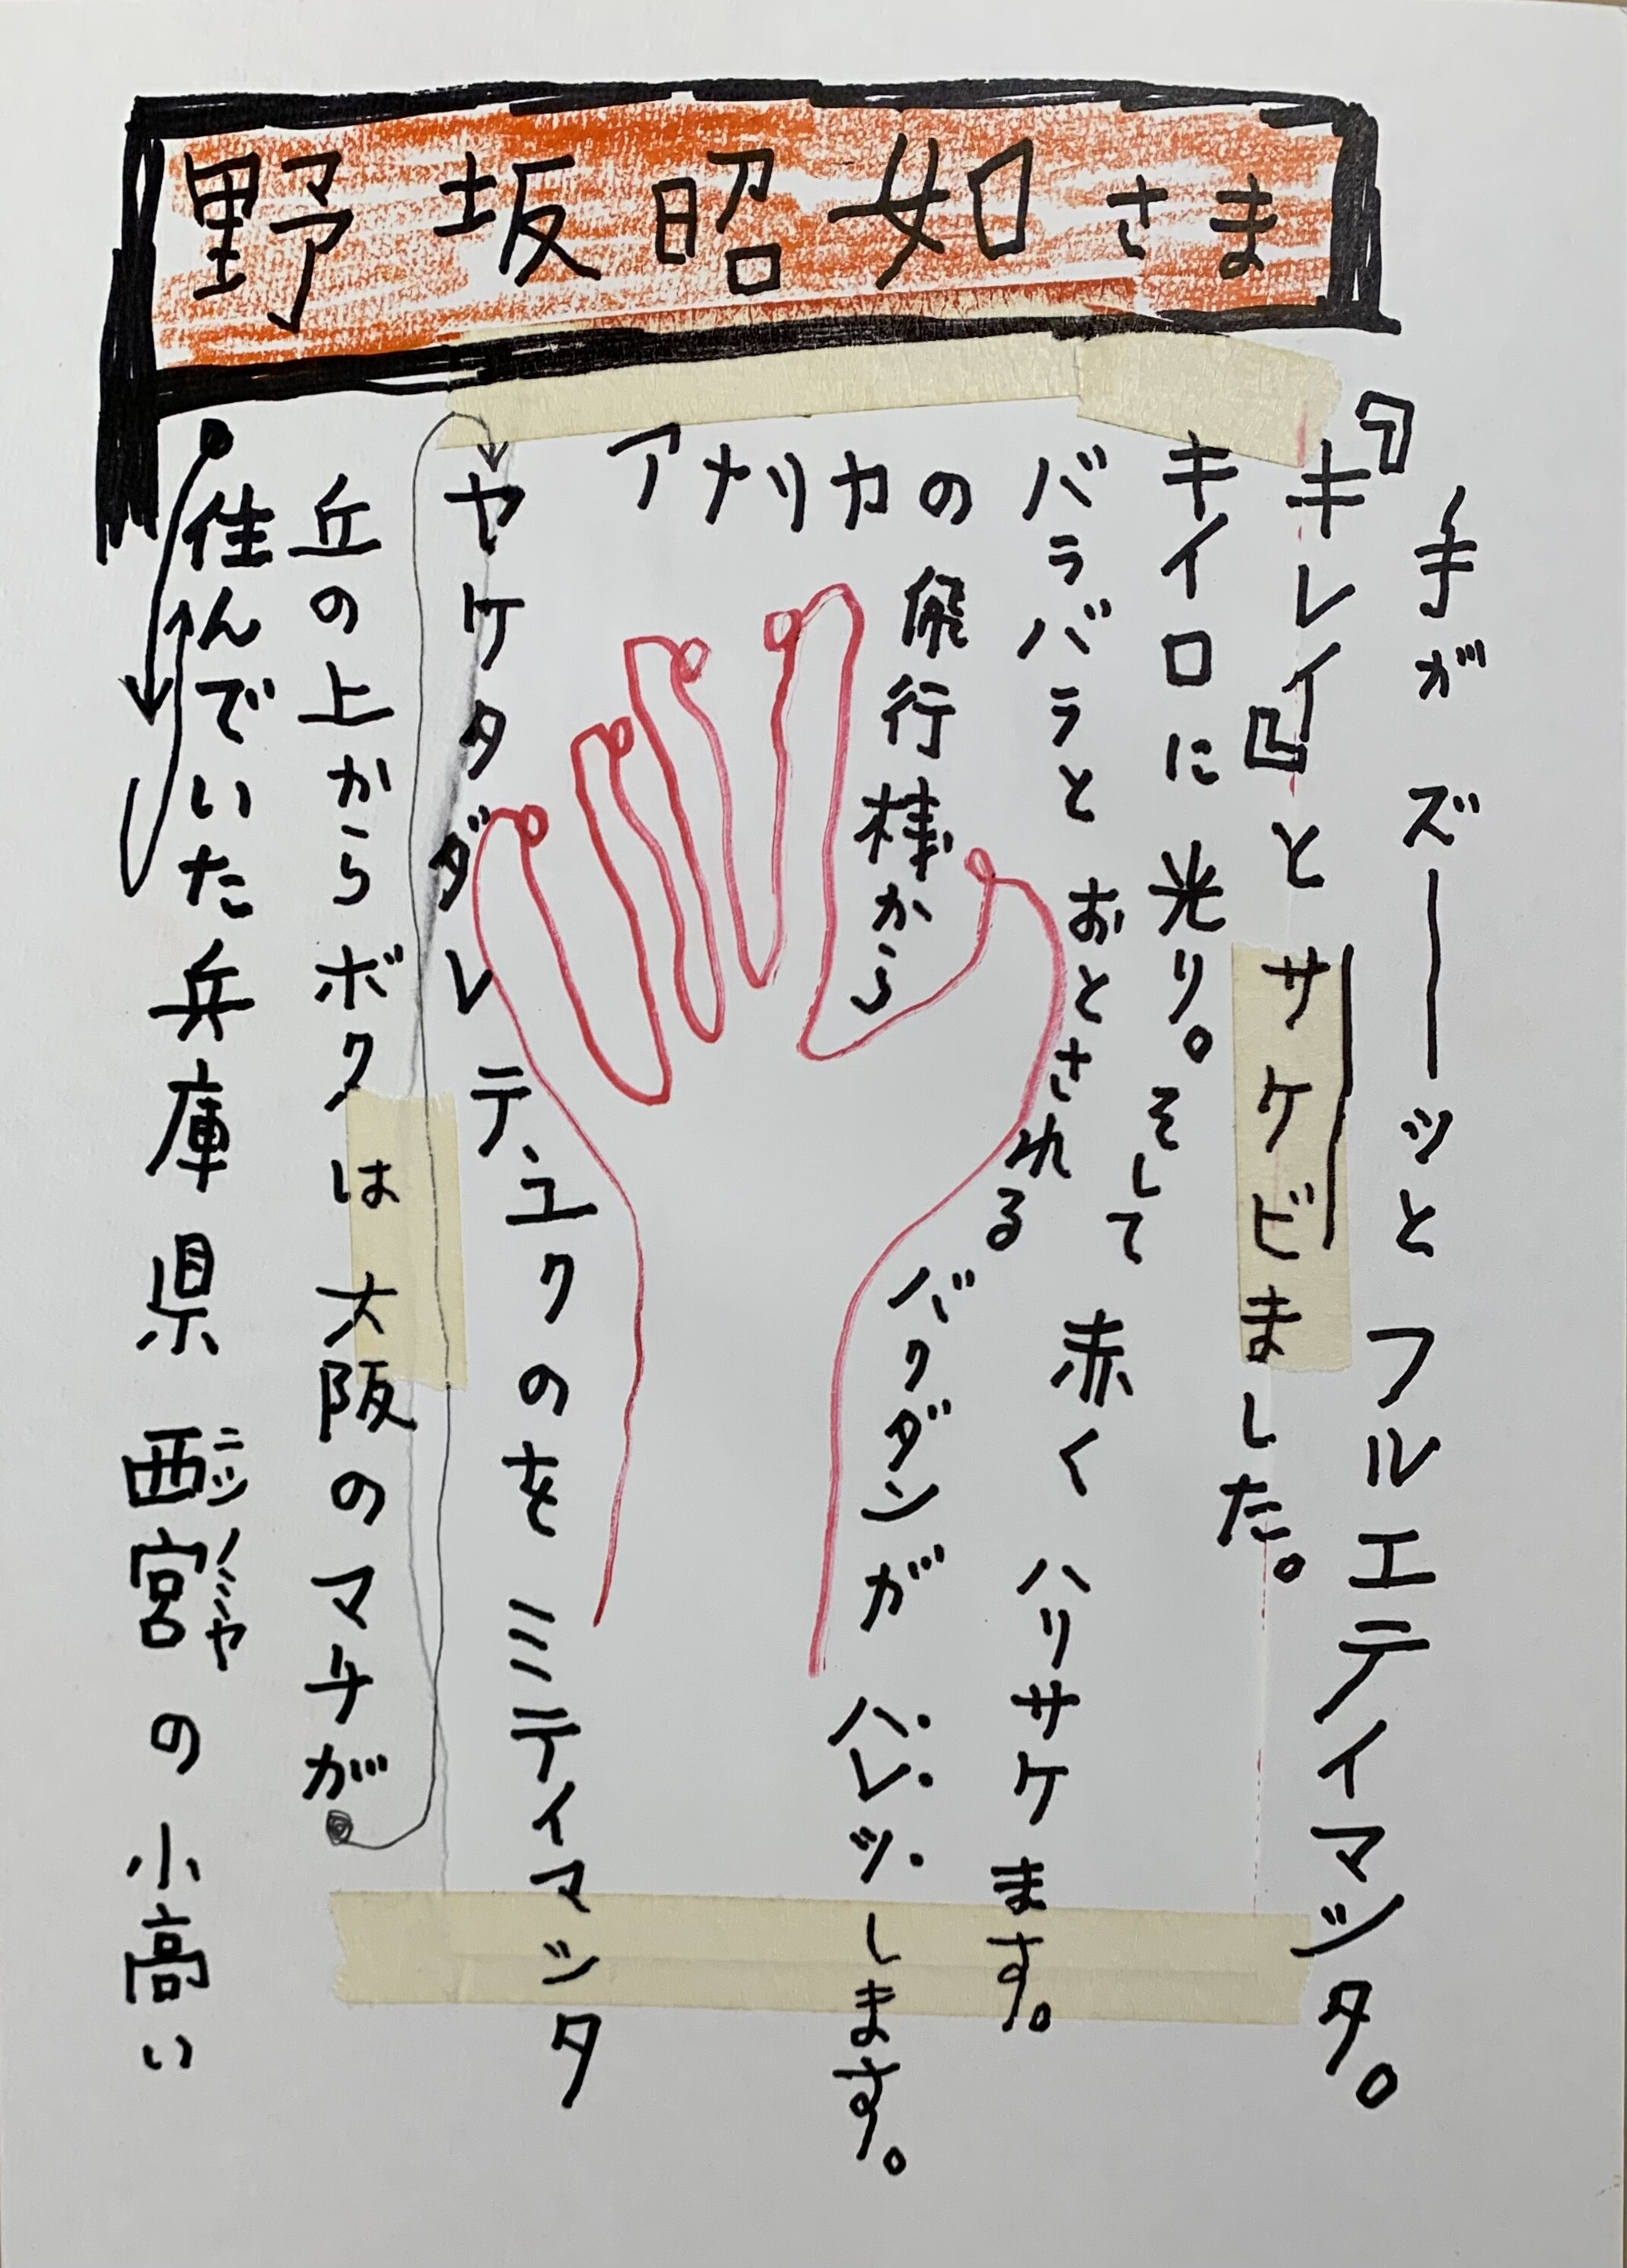 野坂昭如さま
住んでいた兵庫県西宮の小高い
ニシノミヤ
丘の上からボクは大阪のマチが
ヤケタダレテ、ユクのをミテイマシタ
アメリカの飛行機から
バラバラとおとされるバクダンがハレツします。
キイロに光り。そして赤くハリサケます。
『キレイ』とサケビました。
手がズーッとフルエテイマシタ。